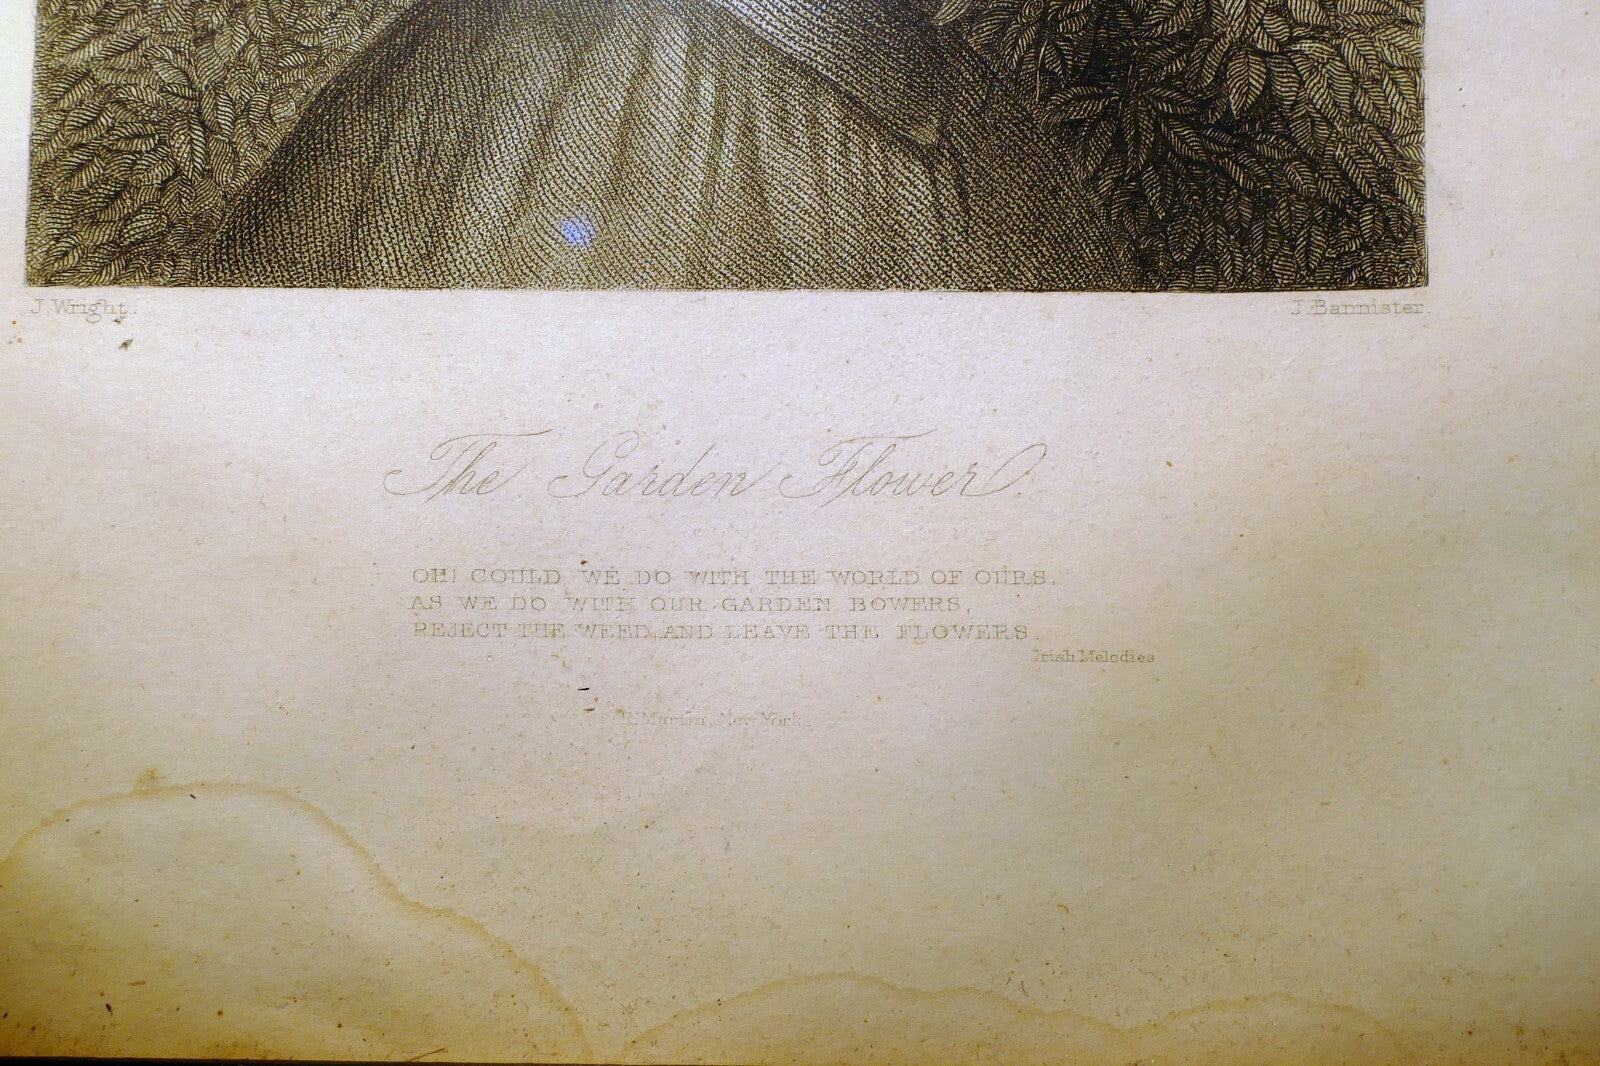 J. Wright.
J. Bannister.
The Garden Flower.
OH! COULD WE DO WITH THE WORLD OF OURS,
AS WE DO WITH OUR GARDEN BOWERS,
REJECT THE WEED, AND LEAVE THE FLOWERS.
Irish Melodies
R. Martin, New York.